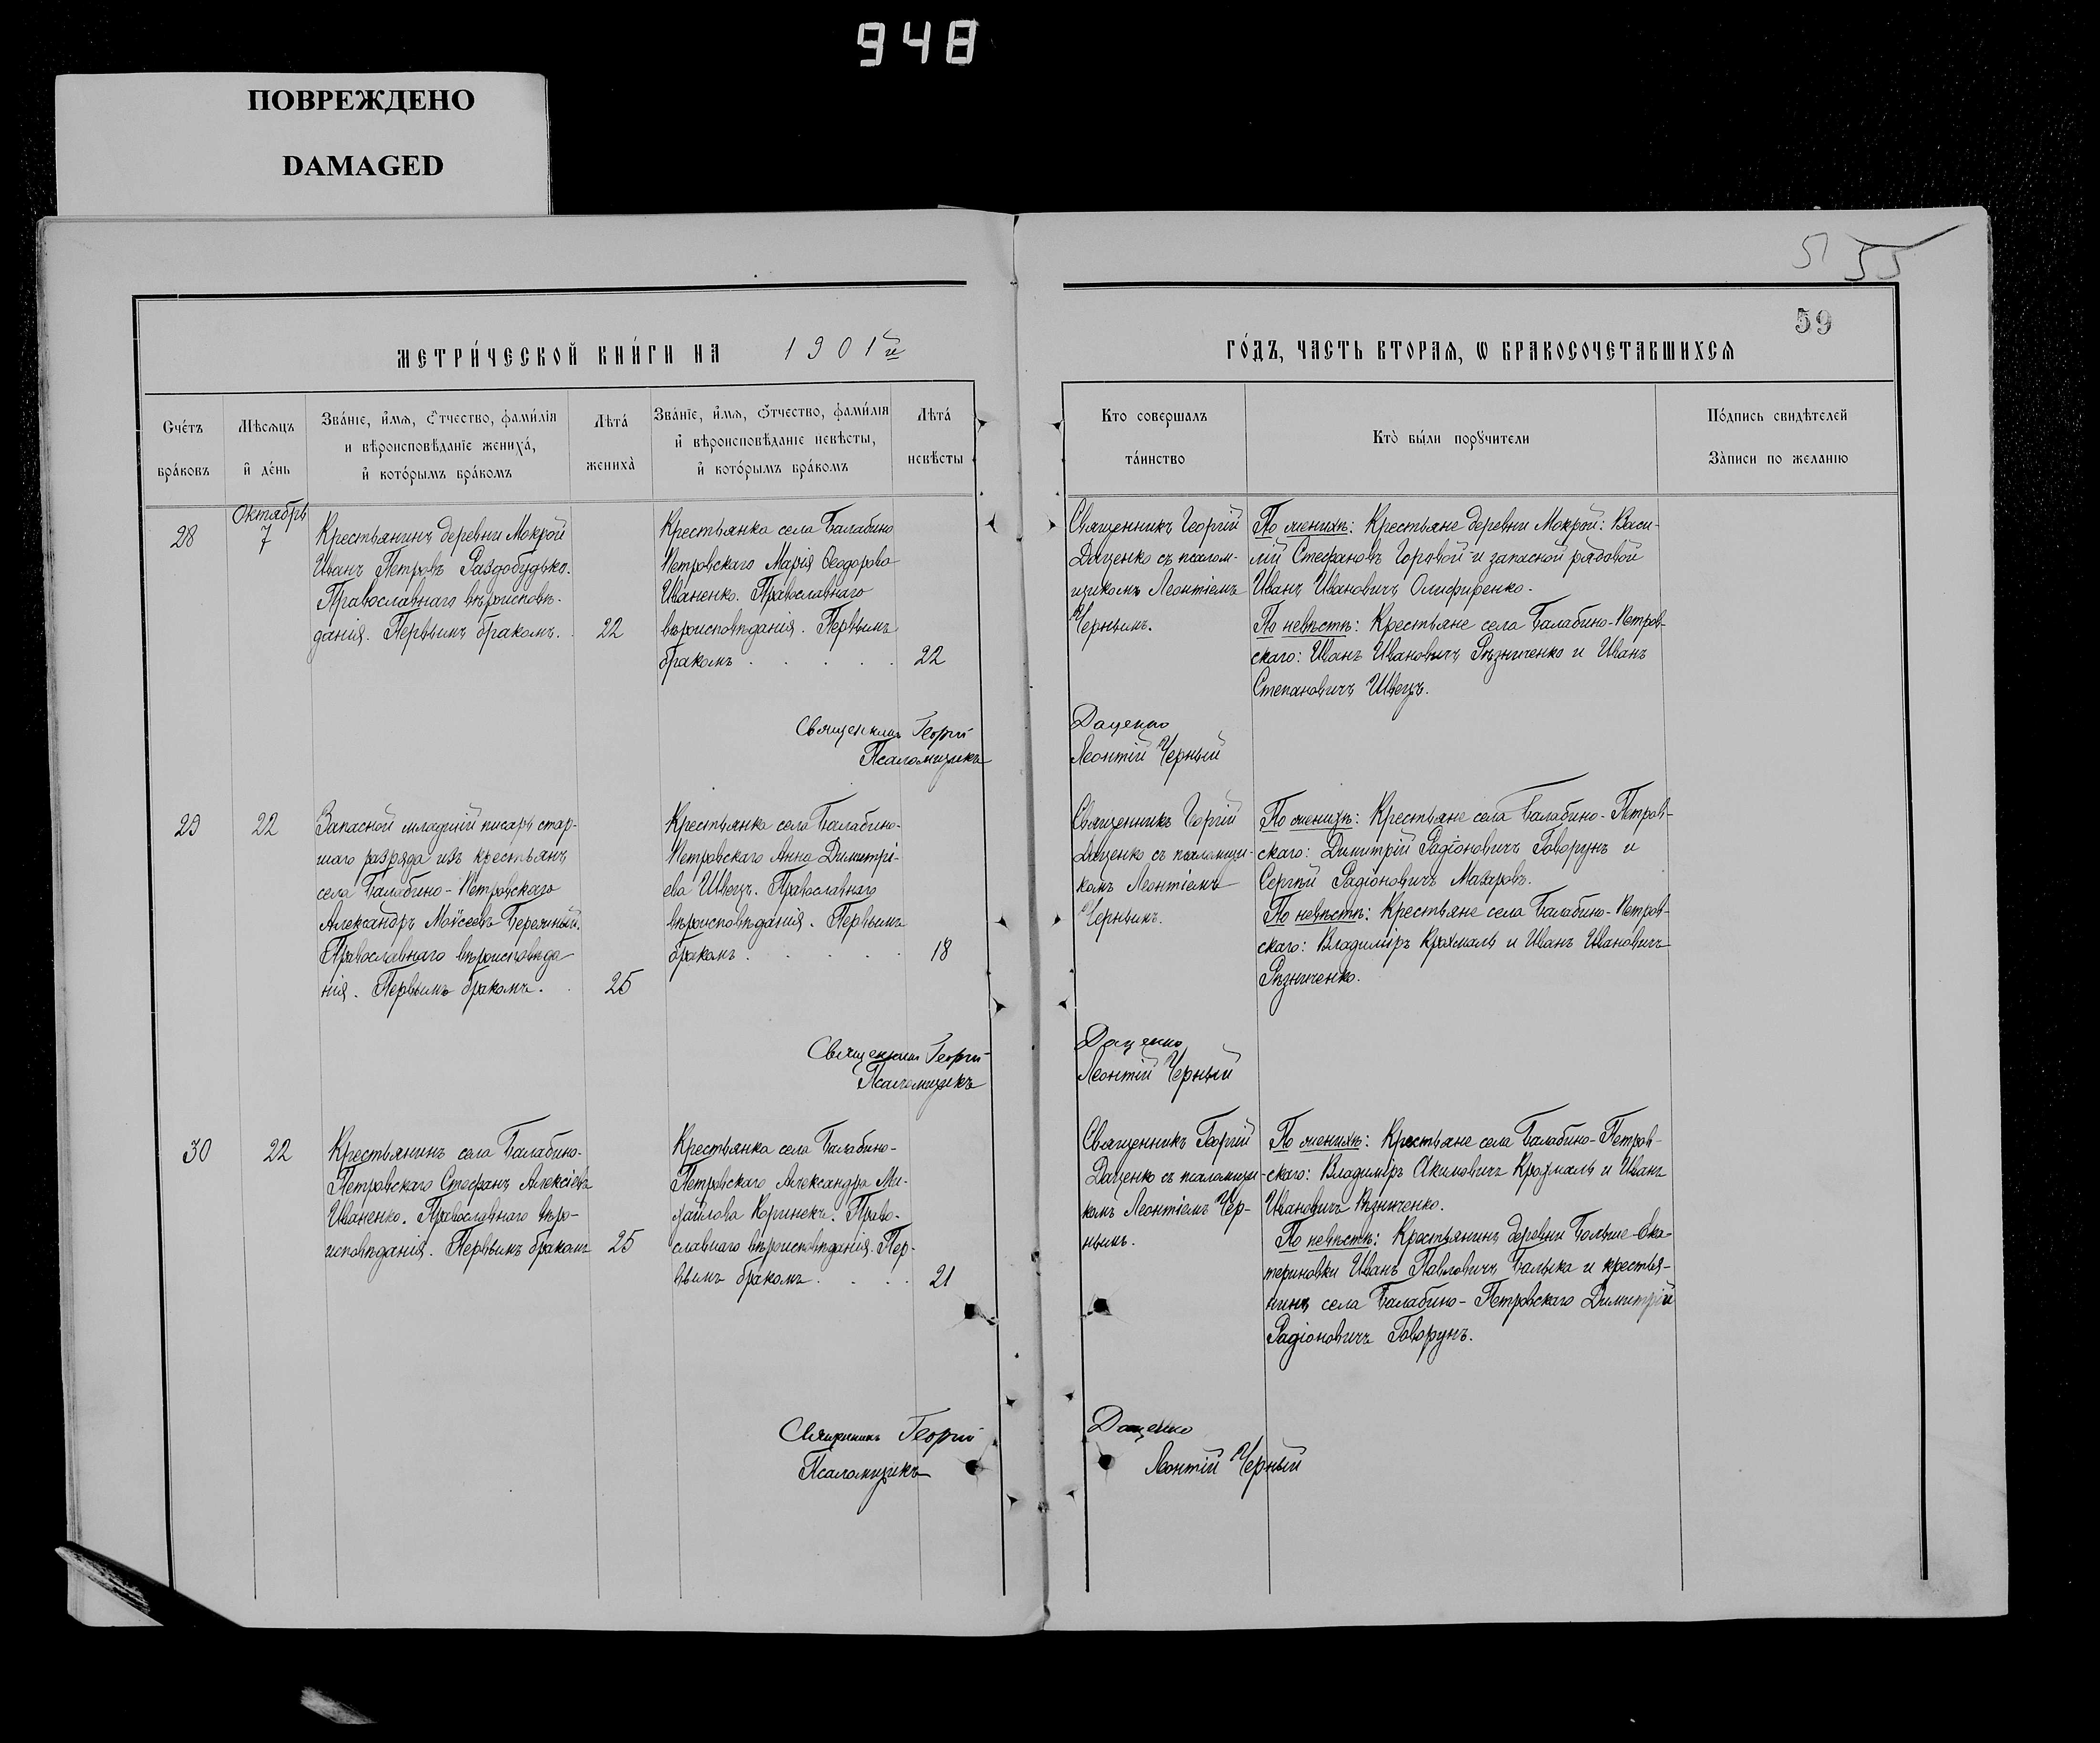 948
ПОВРЕЖДЕНО
DAMAGED
51 55
59
МЕТРИ́ЧЕСКОЙ КНИ́ГИ НА 1901й
ГО́ДЪ, ЧАСТЬ ВТОРАѦ, Ѡ БРАКОСОЧЕТАВШИХСѦ
Сче́тъ
бра́ковъ
Мѣсѧцъ
и҆ де́нь
Зва́нїе, и҆́мѧ, ѻ҆́тчество, фами́лїѧ
и вѣроисповѣ́данїе жениха̀,
и҆ кото́рымъ бра́комъ
Лѣта̀
жениха̀
Зва́нїе, и҆́мѧ, ѻ҆́тчество, фами́лїѧ
и҆ вѣроисповѣ́данїе невѣ́сты,
и҆ кото́рымъ бра́комъ
Лѣта̀
невѣ́сты
Кто совершалъ
та́инство
Кто̀ бы́ли порꙋчители
По́дпись свидѣ́телей
За́писи по желанїю
28
Октябрь
7
Крестьянинъ деревни Мокрой
Иванъ Петровъ Раздобудько.
Православнаго вѣроисповѣ-
данія. Первымъ бракомъ.
22
Крестьянка села Балабино
Петровскаго Марія Ѳеодорова
Иваненко. Православнаго
вѣроисповѣданія. Первымъ
бракомъ . . . . .
22
Священникъ Георгій
Даценко съ псалом-
щикомъ Леонтіемъ
Чернымъ.
По женихѣ: Крестьяне деревни Мокрой: Васи-
лій Стефановъ Горовой и запасной рядовой
Иванъ Ивановичъ Олифиренко.
По невѣстѣ: Крестьяне села Балабино-Петров-
скаго: Иванъ Ивановичъ Рѣзниченко и Иванъ
Степановичъ Швецъ.
Священникъ Георгій Даценко
Псаломщикъ Леонтій Черный
29
22
Запасной младшій писарь стар-
шаго разряда изъ крестьянъ
села Балабино-Петровскаго
Александръ Моѵсеевъ
Православнаго вѣроисповѣда
нія. Первымъ бракомъ.
25
Крестьянка села Балабино-
Петровскаго Анна Димитрі-
ева Швецъ. Православнаго
вѣроисповѣданія. Первымъ
бракомъ . . . . .
18
Священникъ Георгій
Даценко съ псаломщи-
комъ Леонтіемъ
Чернымъ.
По женихѣ: Крестьяне села Балабино-Петров-
скаго: Димитрій Радіоновичъ Говорунъ и
Сергѣй Радіоновичъ
По невѣстѣ: Крестьяне села Балабино-Петров-
скаго: Владиміръ Крахмаль и Иванъ Ивановичъ
Рѣзниченко.
Священникъ Георгій Даценко
Псаломщикъ Леонтій Черный
30
22
Крестьянинъ села Балабино-
Петровскаго Стефанъ Алексіевъ
Иваненко. Православнаго вѣро-
исповѣданія. Первымъ бракомъ
25
Крестьянка села Балабино-
Петровскаго Александра Ми-
хайлова Коринекъ. Право-
славнаго вѣроисповѣданія. Пер-
вымъ бракомъ . . . .
21
Священникъ Георгій
Даценко съ псаломщи-
комъ Леонтіемъ Чер-
нымъ.
По женихѣ: Крестьяне села Балабино-Петров-
скаго: Владиміръ Акимовичъ Крахмаль и Иванъ
Ивановичъ Рѣзниченко.
По невѣстѣ: Крестьянинъ деревни Больше-Ека-
териновки Иванъ Павловичъ Балыка и крестья-
нинъ села Балабино-Петровскаго Димитрій
Радіоновичъ Говорунъ.
Священникъ Георгій Даценко
Псаломщикъ Леонтій Черный